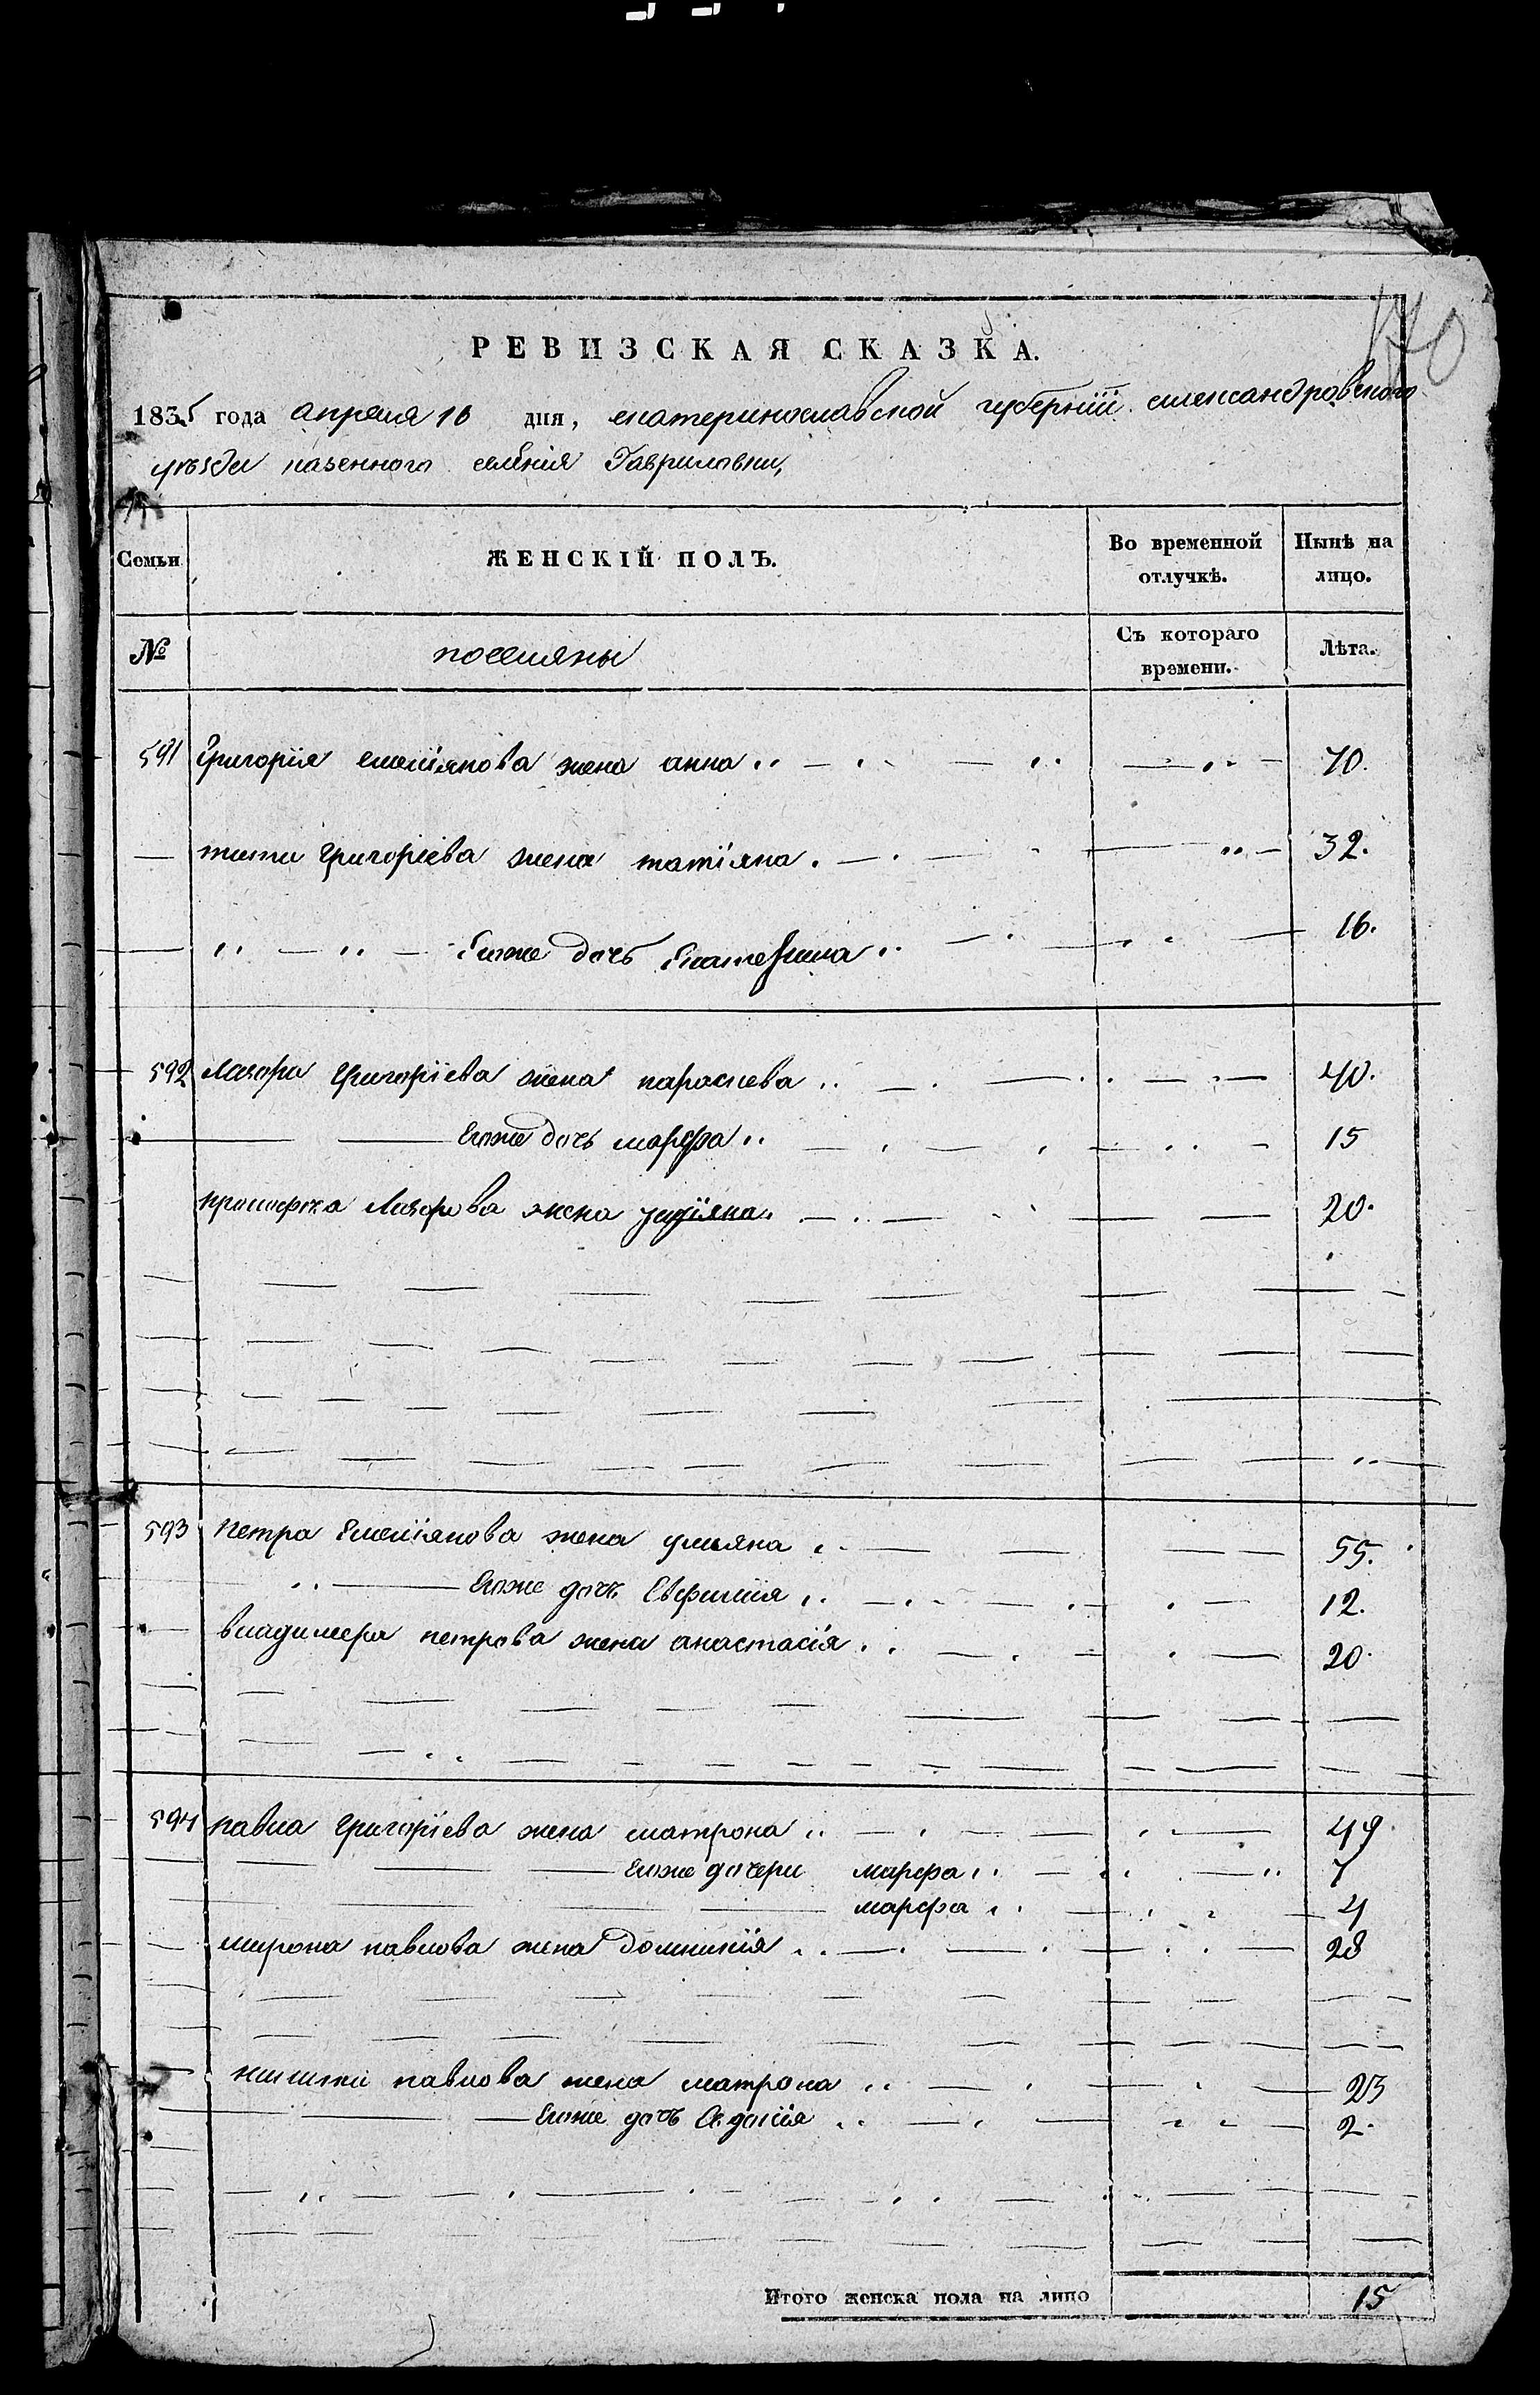 170
РЕВИЗСКАЯ СКАЗКА.
1835 года апреля 10 дня, екатеринославской губерніи александровского
уезда казенного селенія Гавриловки,
Семьи
ЖЕНСКІЙ ПОЛЪ.
Во временной отлучкѣ.
Нынѣ на лицо.
№
поселяны
Съ котораго времени.
Лѣта.
591 Григорія емеліянова жена анна 70.
тита Григоріева жена татіяна 32.
Егоже дочь Екатерина 16.
592 Лазора Григоріева жена параскева 40.
Егоже дочь марфа 15
прокофия Лазорова жена 20.
593 Петра Емеліянова жена улияна 55.
Егоже дочь Евфимія 12.
владимера петрова жена анастасія 20.
594 павла Григоріева жена матрона 49.
Егоже дочери марфа 7
марфа 4
мирона павлова жена домникія 28
никиты павлова жена матрона 23
Егоже дочь 2.
Итого женска пола на лицо 15